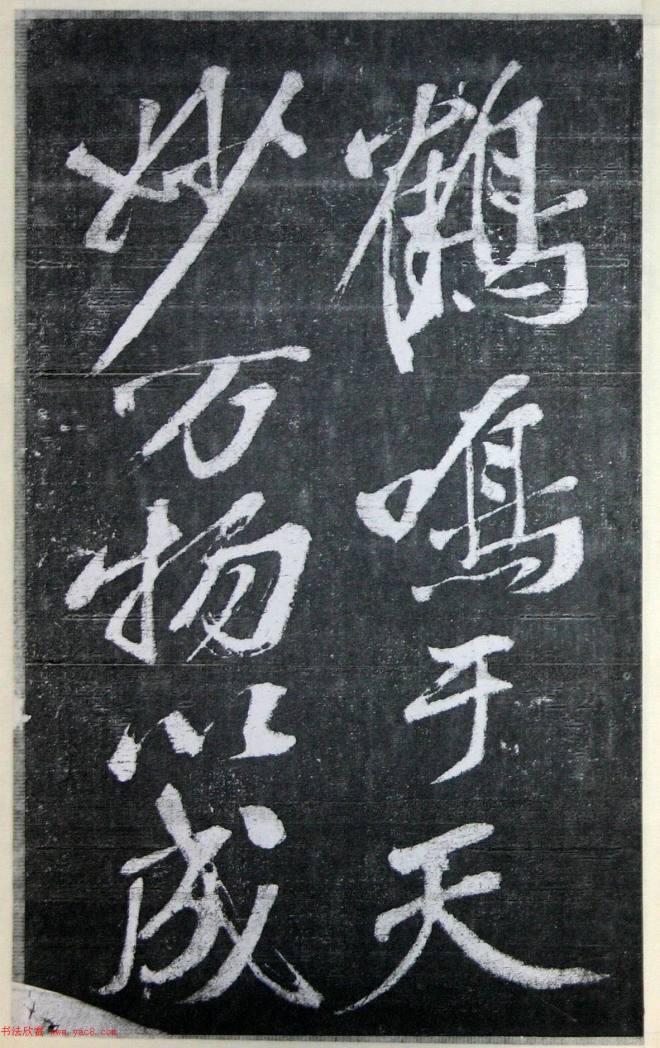 鹤鸣于天
妙万物以成
书法欣赏 www.yac8.com